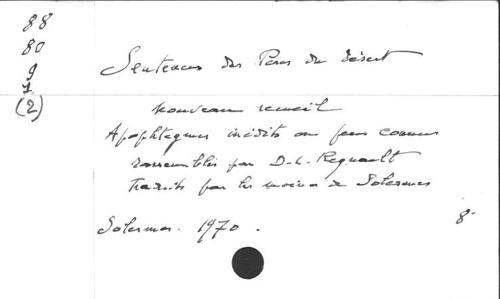 88
80
9
1
(2)
Sentences des Pères du désert
nouveau recueil
Apophtegmes inédits ou peu connus
rassemblés par D.-L. Regnault
traduits par les moines de Solesmes
Solesmes. 1970.
8°